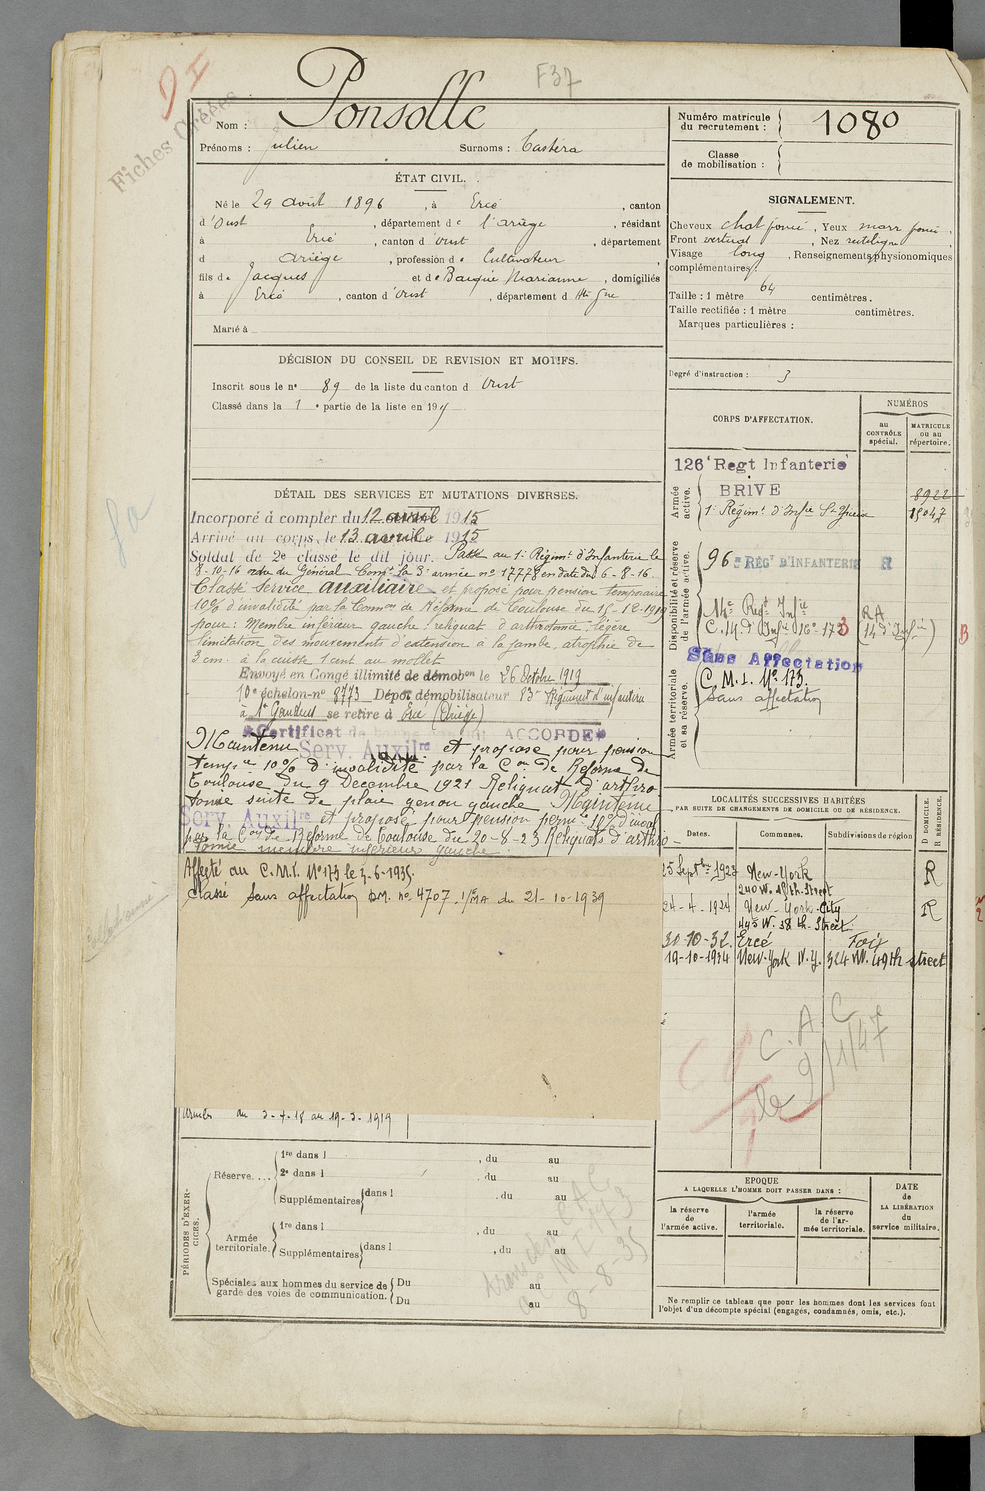 F37
Fiches Créées
Nom : Ponsolle
Prénoms : Julien Surnoms : Castéra
Numéro matricule du recrutement : 1080
Classe de mobilisation :
ÉTAT CIVIL.
Né le 29 août 1896, à Ercé, canton
d'Oust, département de l'ariège, résidant
à Ercé, canton d'Oust, département
d ariège, profession de Cultivateur
fils de Jacques et de Marianne, domiciliés
à Ercé, canton d'Oust, département d Hte Gne
Marié à
SIGNALEMENT.
Cheveux chat foncé, Yeux marr foncé,
Front vertical, Nez rectiligne,
Visage long, Renseignements physionomiques
complémentaires :
Taille : 1 mètre 64 centimètres.
Taille rectifiée : 1 mètre centimètres.
Marques particulières :
Degré d'instruction : 3
DÉCISION DU CONSEIL DE REVISION ET MOTIFS.
Inscrit sous le n° 89 de la liste du canton d'Oust
Classé dans la 1e partie de la liste en 191
DÉTAIL DES SERVICES ET MUTATIONS DIVERSES.
Incorporé à compter du 12 avril 1915
Arrivé au corps le 13 avril 1915
Soldat de 2e classe le dit jour. Passé au 1er Régimt d'Infanterie le
8-10-16 ordre du Général Commt la 3e armée n° 17778 en date du 6-8-16
Classé service auxiliaire et proposé pour pension temporaire
10% d'invalidité par la Comon de Réforme de Toulouse du 15-12-1919
pour : Membre inférieur gauche : reliquat d'arthrotomie : légère
limitation des mouvements d'extension à la jambe, atrophie de
3 cm. à la cuisse 1 cent au mollet
Envoyé en Congé illimité de démobon le 26 Octobre 1919
10e échelon-n° 8773 Dépôt démobilisateur 83e Régiment d'infanterie
à St Gaudens se retire à Ercé (Ariège)
Certificat de bonne conduite ACCORDÉ
Maintenu Serv. Auxilre et proposé pour pension
tempre 10% d'invalidité par la Con de Réforme de
Toulouse du 9 Decembre 1921 Reliquat d'arthro
tomie suite de plaie genou gauche Maintenu
Serv. Auxilre et proposé pour pension permte 10% d'inval
par la Con de Réforme de Toulouse du 20-8-23 Reliquats d'arthro-
tomie membre inférieur gauche.
Affecté au C.M.I. N° 173 le 3-6-1935.
Classé Sans affectation DM. n° 4707. 1/MA du 21-10-1939
Armées du 3-4-18 au 19-3-1919
CORPS D'AFFECTATION.
NUMÉROS
au CONTRÔLE spécial.
MATRICULE ou au répertoire.
Armée active.
126e Regt Infanterie
BRIVE
8922
1er Régimt d'Infie St Yrieix 15047
Disponibilité et réserve de l'armée active.
96e RÉGt D'INFANTERIE R
14e Regt Infie
C.M. d'Infie 16e-173 (RA 14e d'Infie)
B
Sans Affectation
Armée territoriale et sa réserve.
C.M.I. N° 173.
Sans affectation
LOCALITÉS SUCCESSIVES HABITÉES
PAR SUITE DE CHANGEMENTS DE DOMICILE OU DE RÉSIDENCE.
Dates. Communes. Subdivisions de région
D DOMICILE. R RÉSIDENCE.
25 Septbre 1923 New-York R
240 W. 15th. Street
24-4-1924 New-York-City R
445 W. 38 th-Street
30-10-32. Ercé Foix
19-10-1934 New-York N.Y. 324 W. 49th street
C. A. C
le 9/1/47
PÉRIODES D'EXERCICES.
Réserve.... 1re dans l , du au
2e dans l , du au
Supplémentaires dans l , du au
Armée territoriale. 1re dans l , du au
Supplémentaires dans l , du au
Spéciales aux hommes du service de garde des voies de communication. Du au
Du au
8-8-35
EPOQUE
A LAQUELLE L'HOMME DOIT PASSER DANS :
la réserve de l'armée active.
l'armée territoriale.
la réserve de l'armée territoriale.
DATE de LA LIBÉRATION du service militaire.
Ne remplir ce tableau que pour les hommes dont les services font
l'objet d'un décompte spécial (engagés, condamnés, omis, etc.).